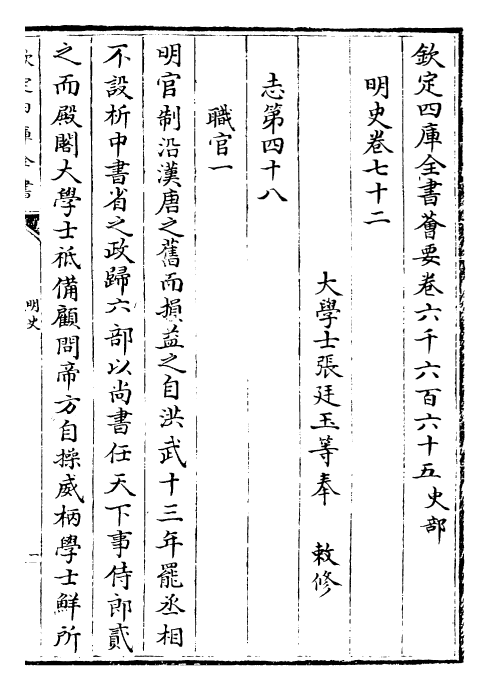 欽定四庫全書薈要卷六千六百六十五史部
明史卷七十二
大學士張廷玉等奉 敕修
志第四十八
職官一
明官制沿漢唐之舊而損益之自洪武十三年罷丞相
不設析中書省之政歸六部以尚書任天下事侍郎貳
之而殿閣大學士祇備顧問帝方自操威柄學士鮮所
欽定四庫全書
明史
一